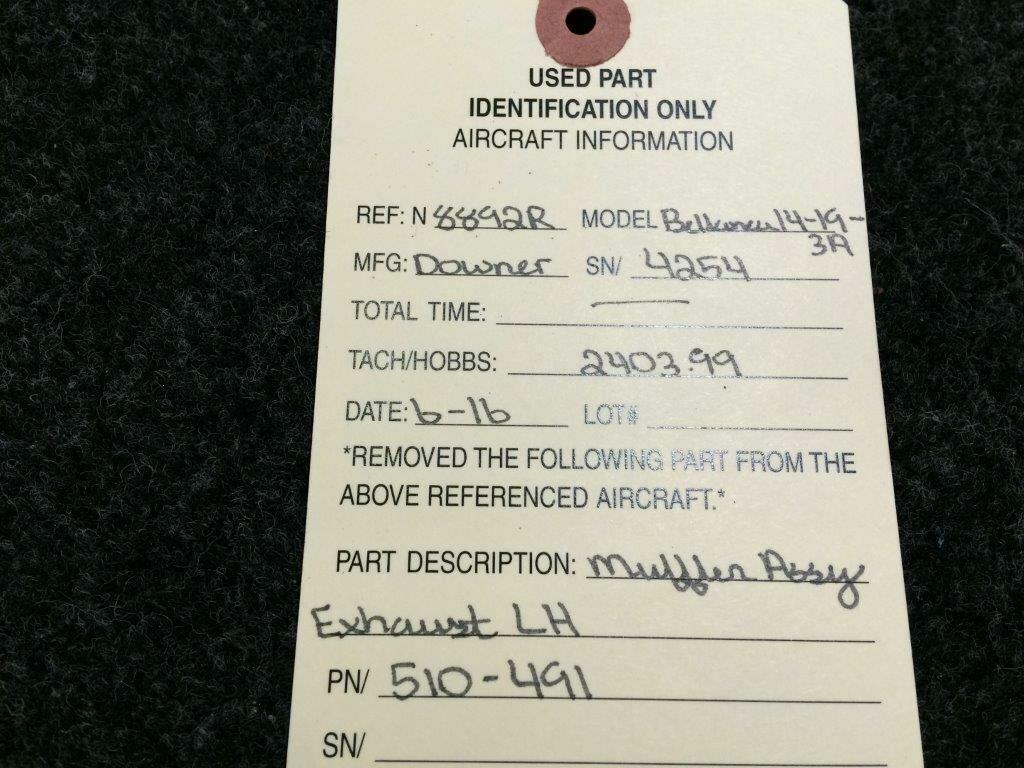 USED PART
IDENTIFICATION ONLY
AIRCRAFT INFORMATION
REF: N 8892R MODEL Bellanca 14-19-
3A
MFG: Downer SN/ 4254
TOTAL TIME: —
TACH/HOBBS: 2403.99
DATE: 6-16 LOT#
*REMOVED THE FOLLOWING PART FROM THE
ABOVE REFERENCED AIRCRAFT.*
PART DESCRIPTION: Muffler Assy
Exhaust LH
PN/ 510-491
SN/